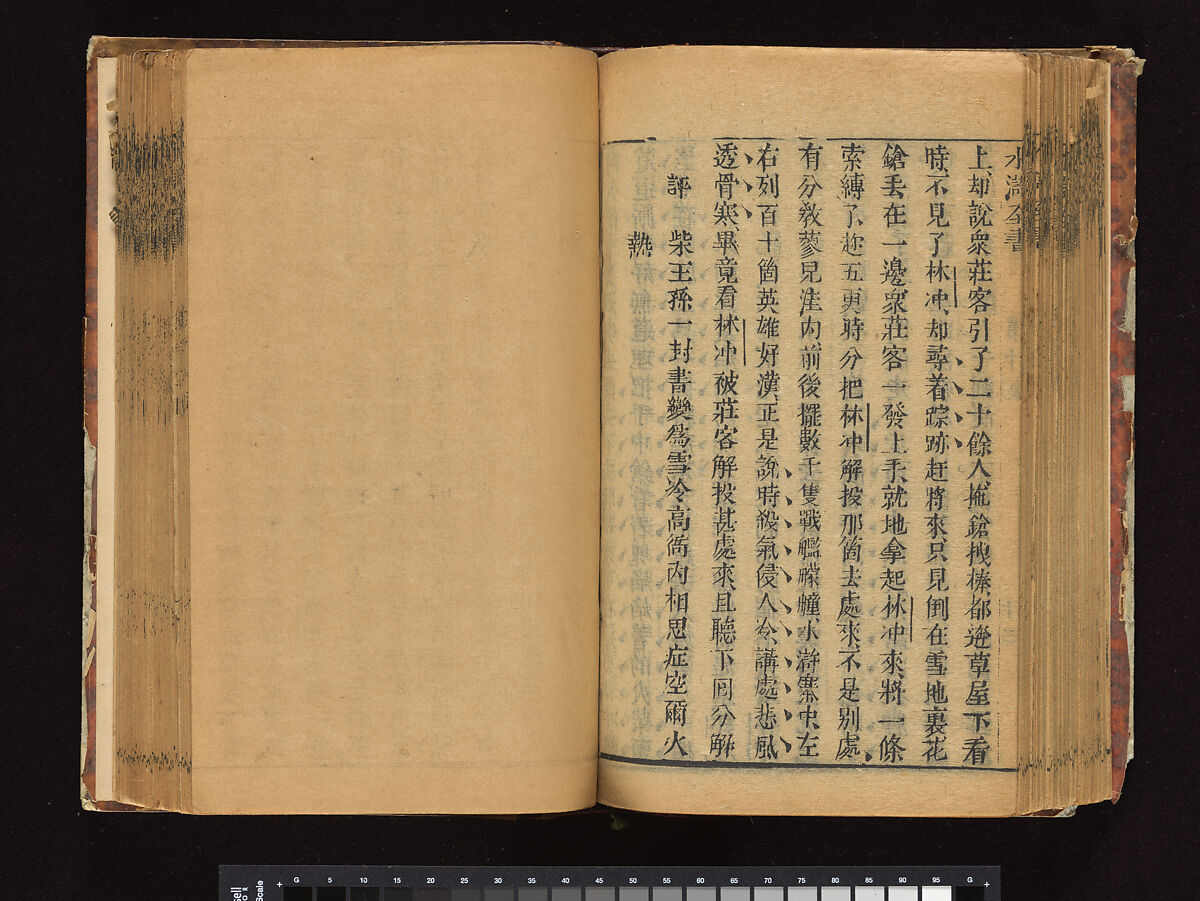 水滸全書
上、却說衆莊客引了二十餘人、拖鎗拽棒、都迯草屋下看
時、不見了林冲、却尋着踪跡赶將來、只見倒在雪地裏、花
鎗丢在一邊、衆莊客一發上手、就地拿起林冲來、將一條
索縛了、趂五更時分把林冲解投那箇去處來、不是别處、
有分敎蓼兒洼內前後擺數千隻戰艦艨艟、水滸寨中、左
右列百十箇英雄好漢、正是說時殺氣侵人冷、講處悲風
透骨寒、畢竟看林冲被莊客解投甚處來、且聽下囘分解
評 柴王孫一封書變爲雪冷高衙內相思症空爾火
熱
G 5 10 15 20 25 30 35 40 45 50 55 60 65 70 75 80 85 90 95 G
Scale